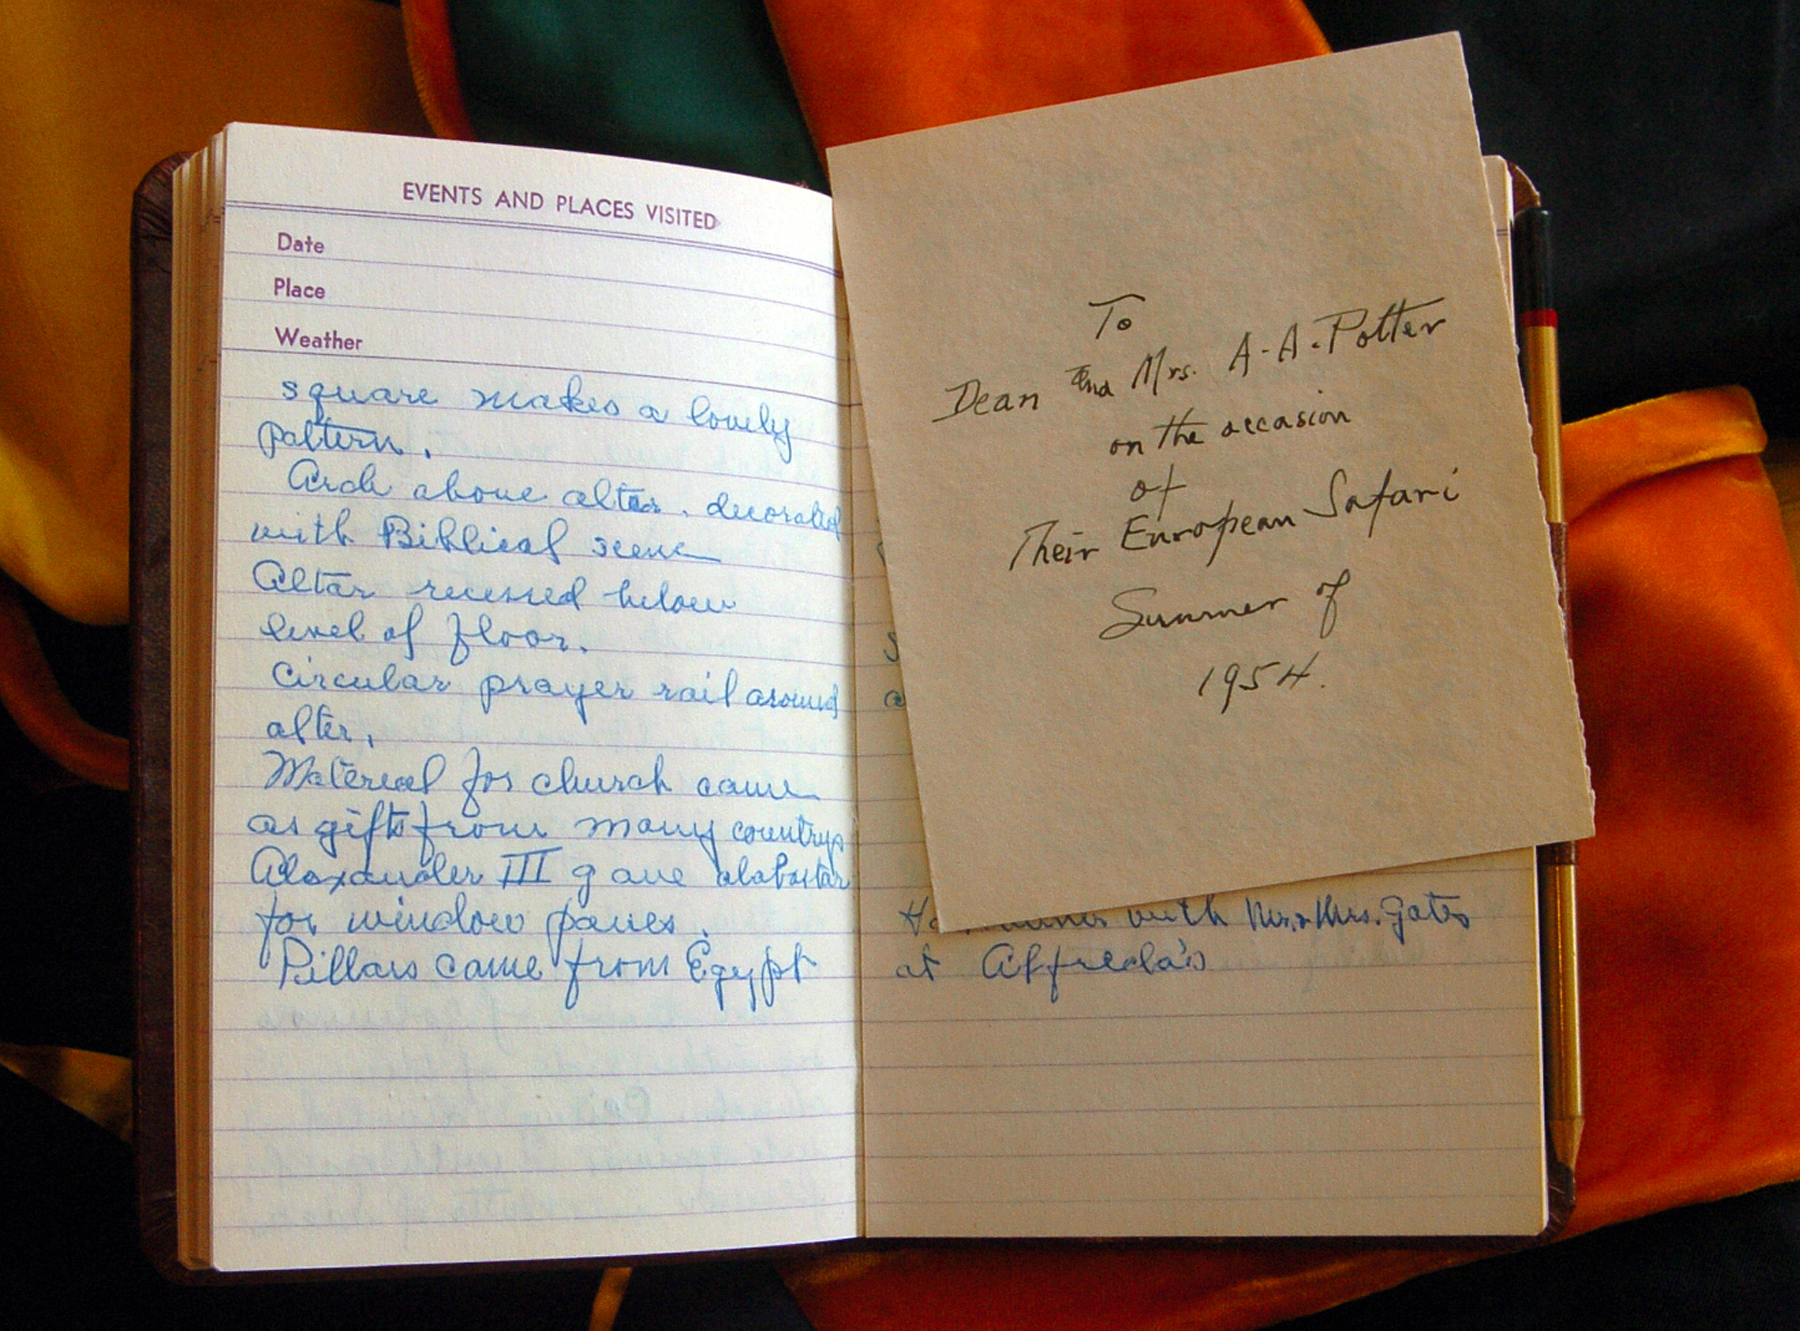 EVENTS AND PLACES VISITED
Date
Place
Weather
square makes a lovely
pattern.
Arch above alter. decorated
with Biblical scene
Altar recessed below
level of floor.
Circular prayer rail around
alter.
Material for church came
as gifts from many countrys
Alexander III gave alabaster
for window panes.
Pillars came from Egypt
To
Dean and Mrs. A. A. Potter
on the occasion
of
Their European Safari
Summer of
1954.
with Mr. & Mrs. Gates
at Alfredo's